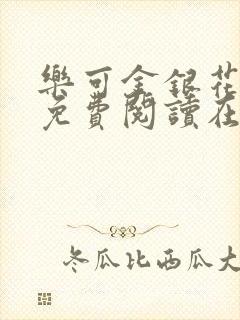 樂可金銀花
免費閱讀在
冬瓜比西瓜大